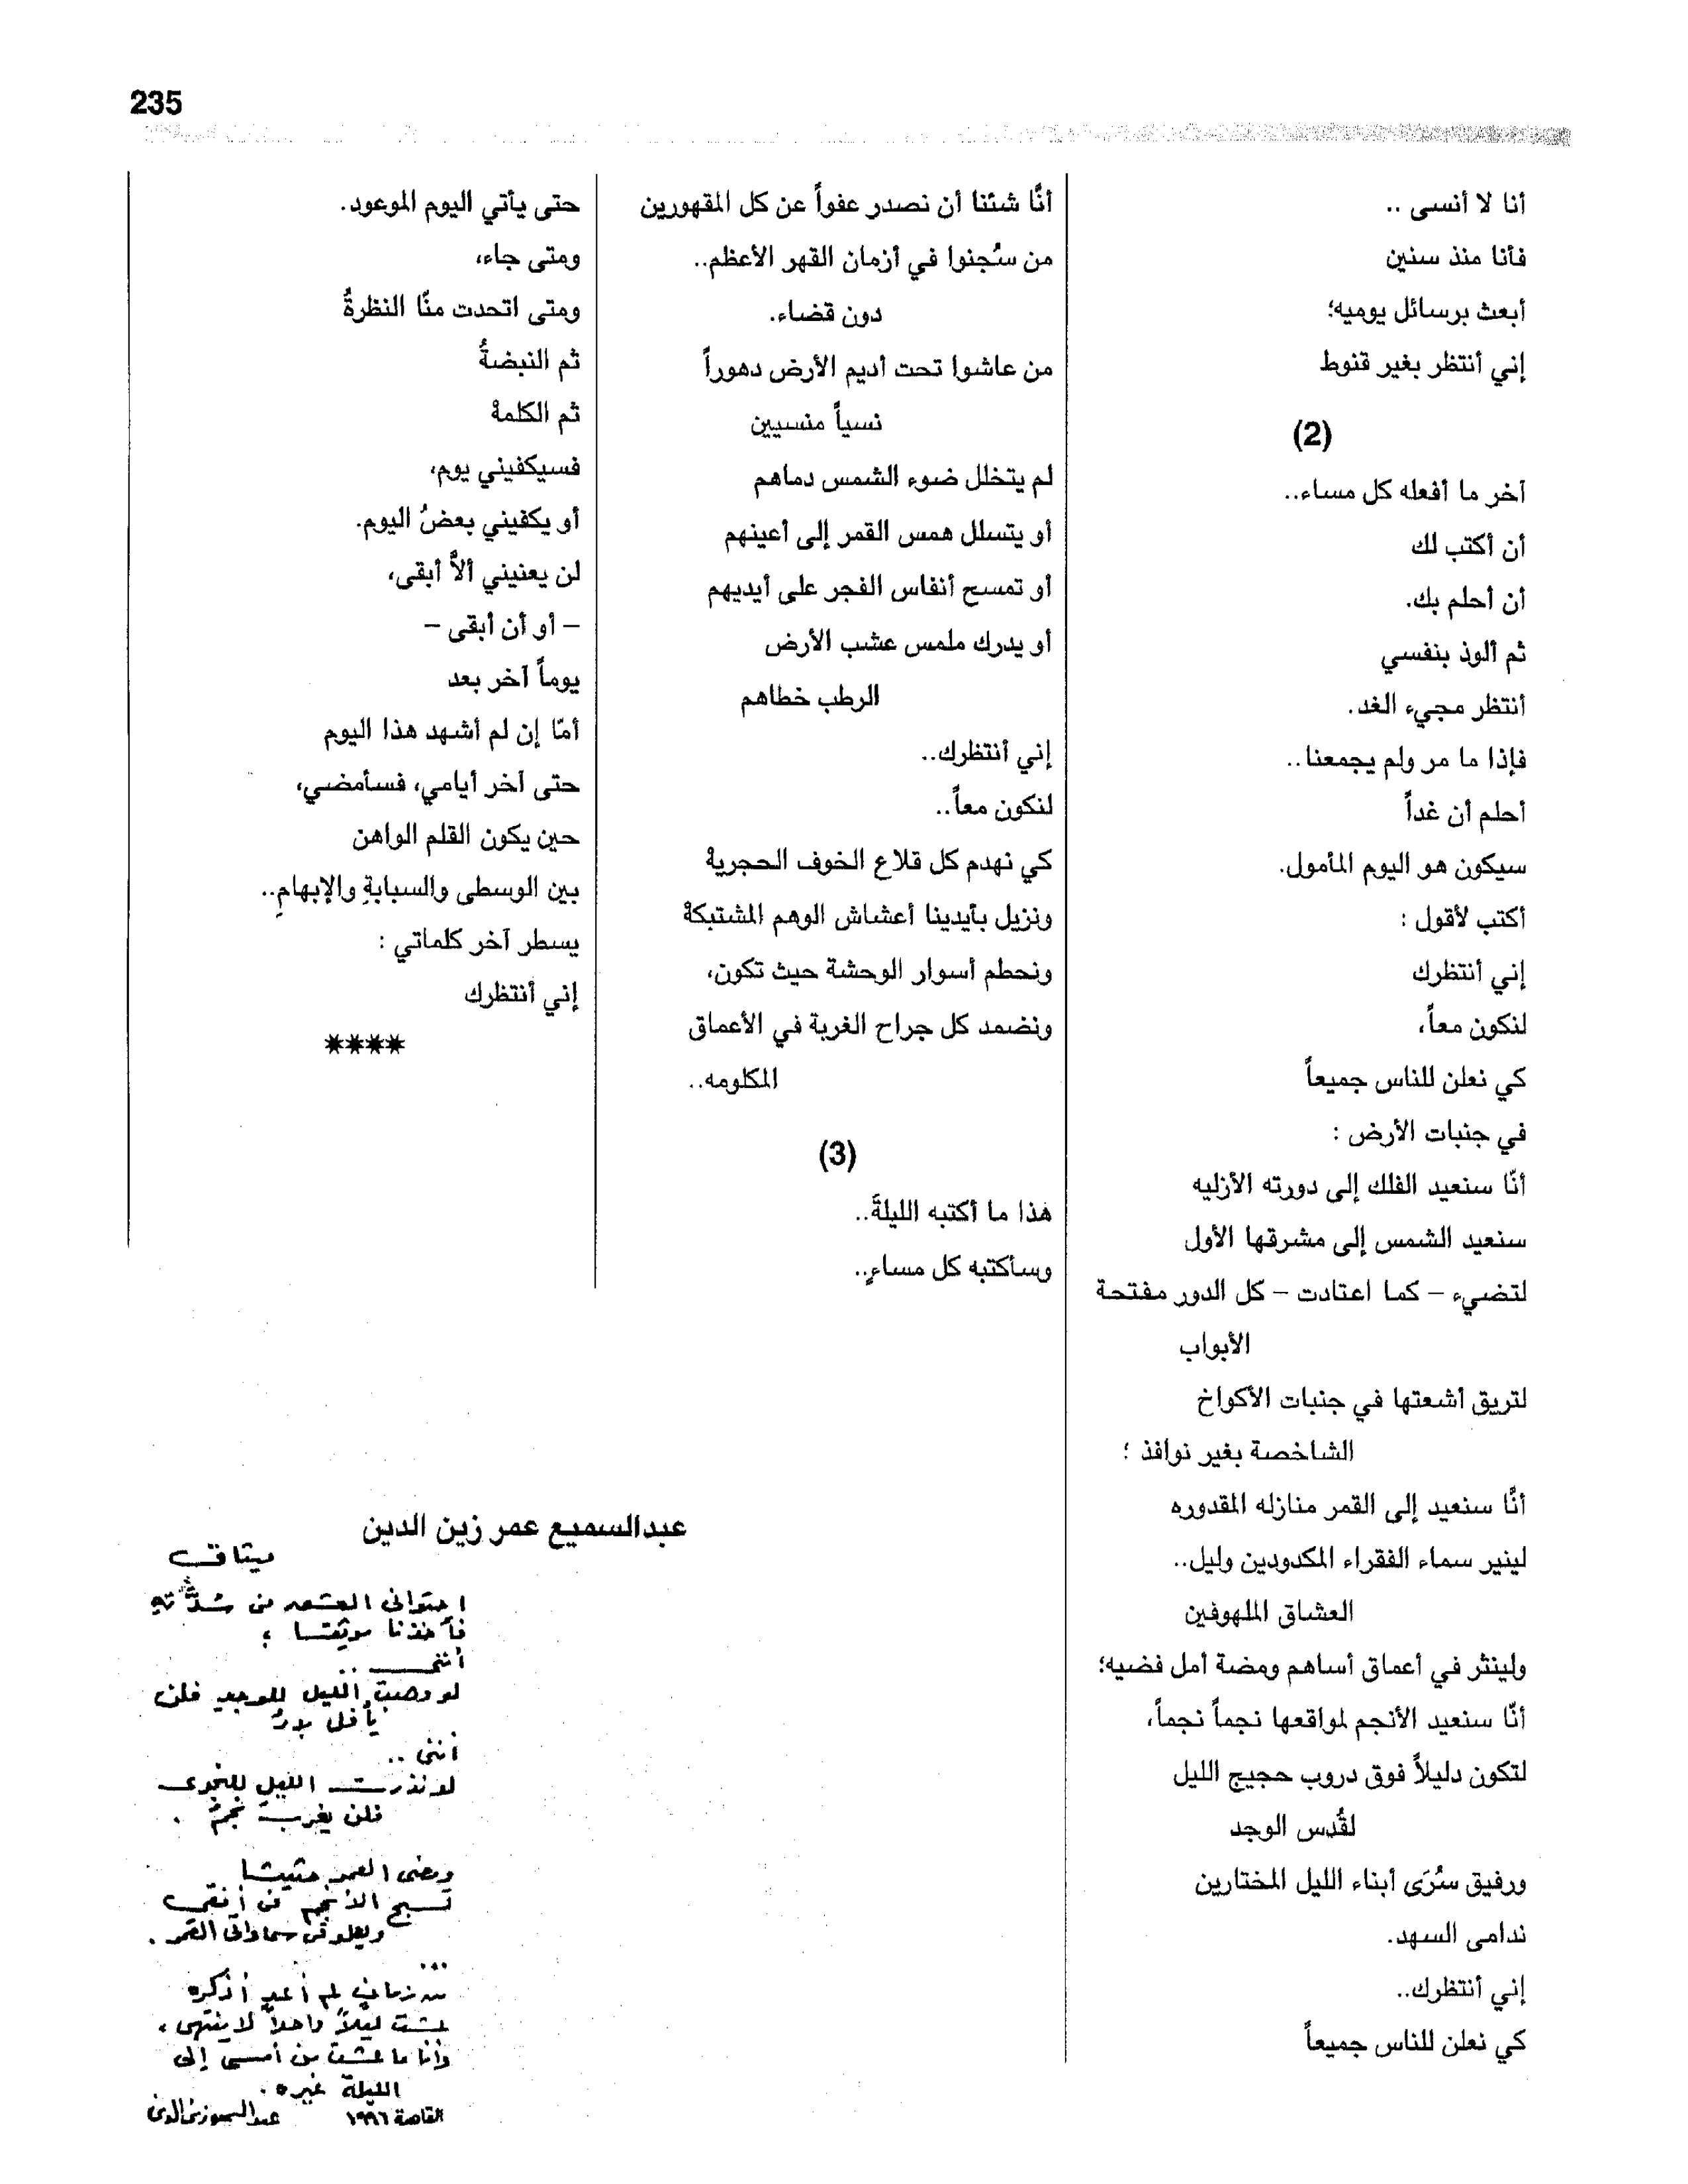 235
أنا لا أنسى ..
فأنا منذ سنين
أبعث برسائل يوميه؛
إني أنتظر بغير قنوط
(2)
آخر ما أفعله كل مساء..
أن أكتب لك
أن أحلم بك.
ثم ألوذ بنفسي
أنتظر مجيء الغد.
فإذا ما مر ولم يجمعنا..
أحلم أن غداً
سيكون هو اليوم المأمول.
أكتب لأقول :
إني أنتظرك
لنكون معاً،
كي نعلن للناس جميعاً
في جنبات الأرض :
أنّا سنعيد الفلك إلى دورته الأزليه
سنعيد الشمس إلى مشرقها الأول
لتضيء – كما اعتادت – كل الدور مفتحة
الأبواب
لتريق أشعتها في جنبات الأكواخ
الشاخصة بغير نوافذ ؛
أنَّا سنعيد إلى القمر منازله المقدوره
لينير سماء الفقراء المكدودين وليل..
العشاق الملهوفين
ولينثر في أعماق أساهم ومضة أمل فضيه؛
أنّا سنعيد الأنجم لمواقعها نجماً نجماً،
لتكون دليلاً فوق دروب حجيج الليل
لقُدس الوجد
ورفيق سُرَى أبناء الليل المختارين
ندامى السهد.
إني أنتظرك..
كي نعلن للناس جميعاً
أنَّا شئنا أن نصدر عفواً عن كل المقهورين
من سُجنوا في أزمان القهر الأعظم..
دون قضاء.
من عاشوا تحت أديم الأرض دهوراً
نسياً منسيين
لم يتخلل ضوء الشمس دماهم
أو يتسلل همس القمر إلى أعينهم
أو تمسح أنفاس الفجر على أيديهم
أو يدرك ملمس عشب الأرض
الرطب خطاهم
إني أنتظرك..
لنكون معاً..
كي نهدم كل قلاع الخوف الحجريةْ
ونزيل بأيدينا أعشاش الوهم المشتبكةْ
ونحطم أسوار الوحشة حيث تكون،
ونضمد كل جراح الغربة في الأعماق
المكلومه..
(3)
هذا ما أكتبه الليلةَ..
وسأكتبه كل مساءٍ..
حتى يأتي اليوم الموعود.
ومتى جاء،
ومتى اتحدت منّا النظرةُ
ثم النبضةُ
ثم الكلمةْ
فسيكفيني يوم،
أو يكفيني بعضُ اليوم.
لن يعنيني ألاَّ أبقى،
– أو أن أبقى –
يوماً آخر بعد
أمّا إن لم أشهد هذا اليوم
حتى آخر أيامي، فسأمضي،
حين يكون القلم الواهن
بين الوسطى والسبابةِ والإبهامِ..
يسطر آخر كلماتي :
إني أنتظرك
****
عبدالسميع عمر زين الدين
ميثاق
احتوانى العشق من
فأخذنا موثقا ؛
أننى ..
لو وهبت الليل للوجد فلن
يأفل بدرُ
أننى ..
لو نذرت الليل للنجوى
فلن يغرب نجمُ .
ومضى العمر حثيثا
تسبح الأنجم فى أفقى
ويعلو فى سماواتى القمر .
...
من زمان لم أعد أذكره
عشت ليلاً واحداً لا ينتهى ،
وأنا ما عشت من أمسى إلى
الليلة غيره .
القاهرة ١٩٩٦
عبد السميع زين الدين